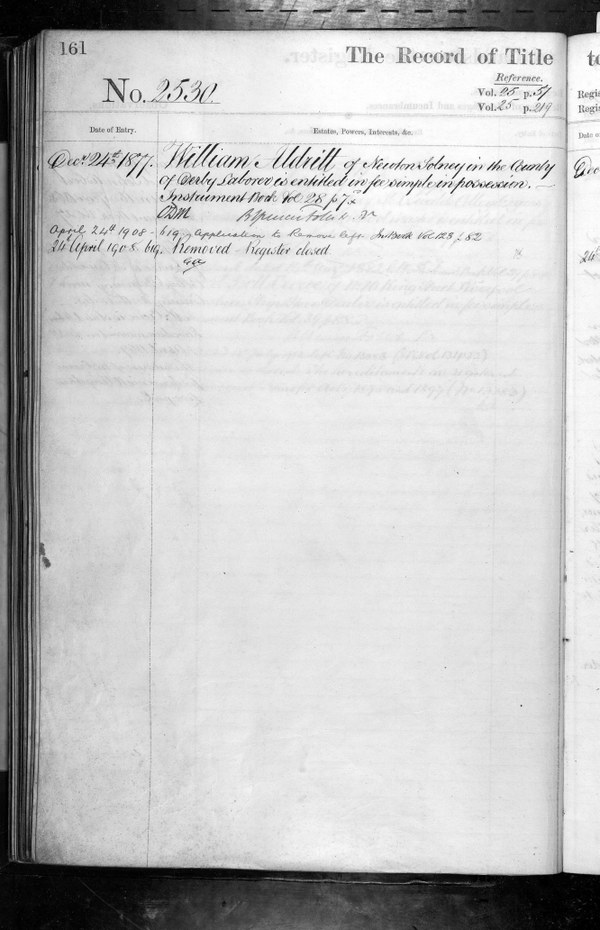 161
The Record of Title
No. 2530.
Reference.
Vol. 25 p. 51
Vol. 25 p. 219
Date of Entry.
Estates, Powers, Interests, &c.
Decr. 24th 1877.
William Aldritt of Newton Solney in the County
of Derby Laborer is entitled in fee simple in possession. —
Instrument Book Vol 28 p 73
April 24th 1908 - 619. Application to Remove Title In Book Vol 123 f. 82
24th April 1908 619. Removed - Register closed
to
Regis
Regis
Date o
Dec
24th